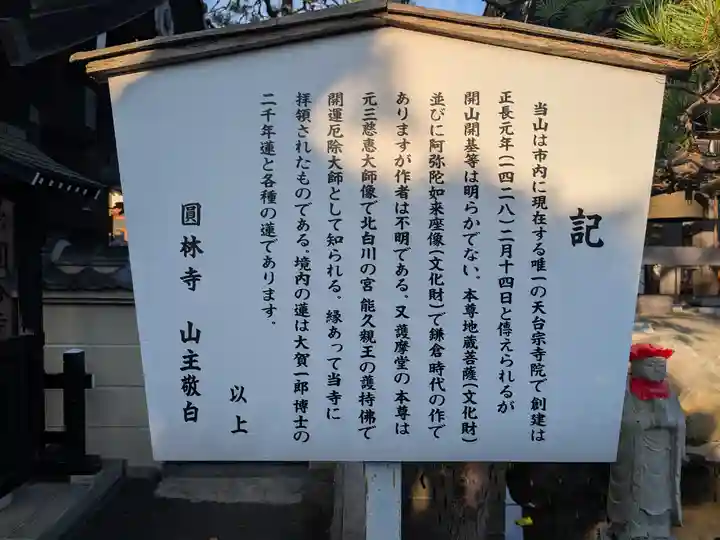 記
当山は市内に現在する唯一の天台宗寺院で創建は
正長元年(一四二八)二月十四日と傳えられるが
開山開基等は明らかでない。本尊地蔵菩薩(文化財)
並びに阿弥陀如来座像(文化財)で鎌倉時代の作で
ありますが作者は不明である。又護摩堂の本尊は
元三慈恵大師像で北白川の宮能久親王の護持佛で
開運厄除大師として知られる。縁あって当寺に
拝領されたものである。境内の蓮は大賀一郎博士の
二千年蓮と各種の蓮であります。
以上
圓林寺 山主敬白